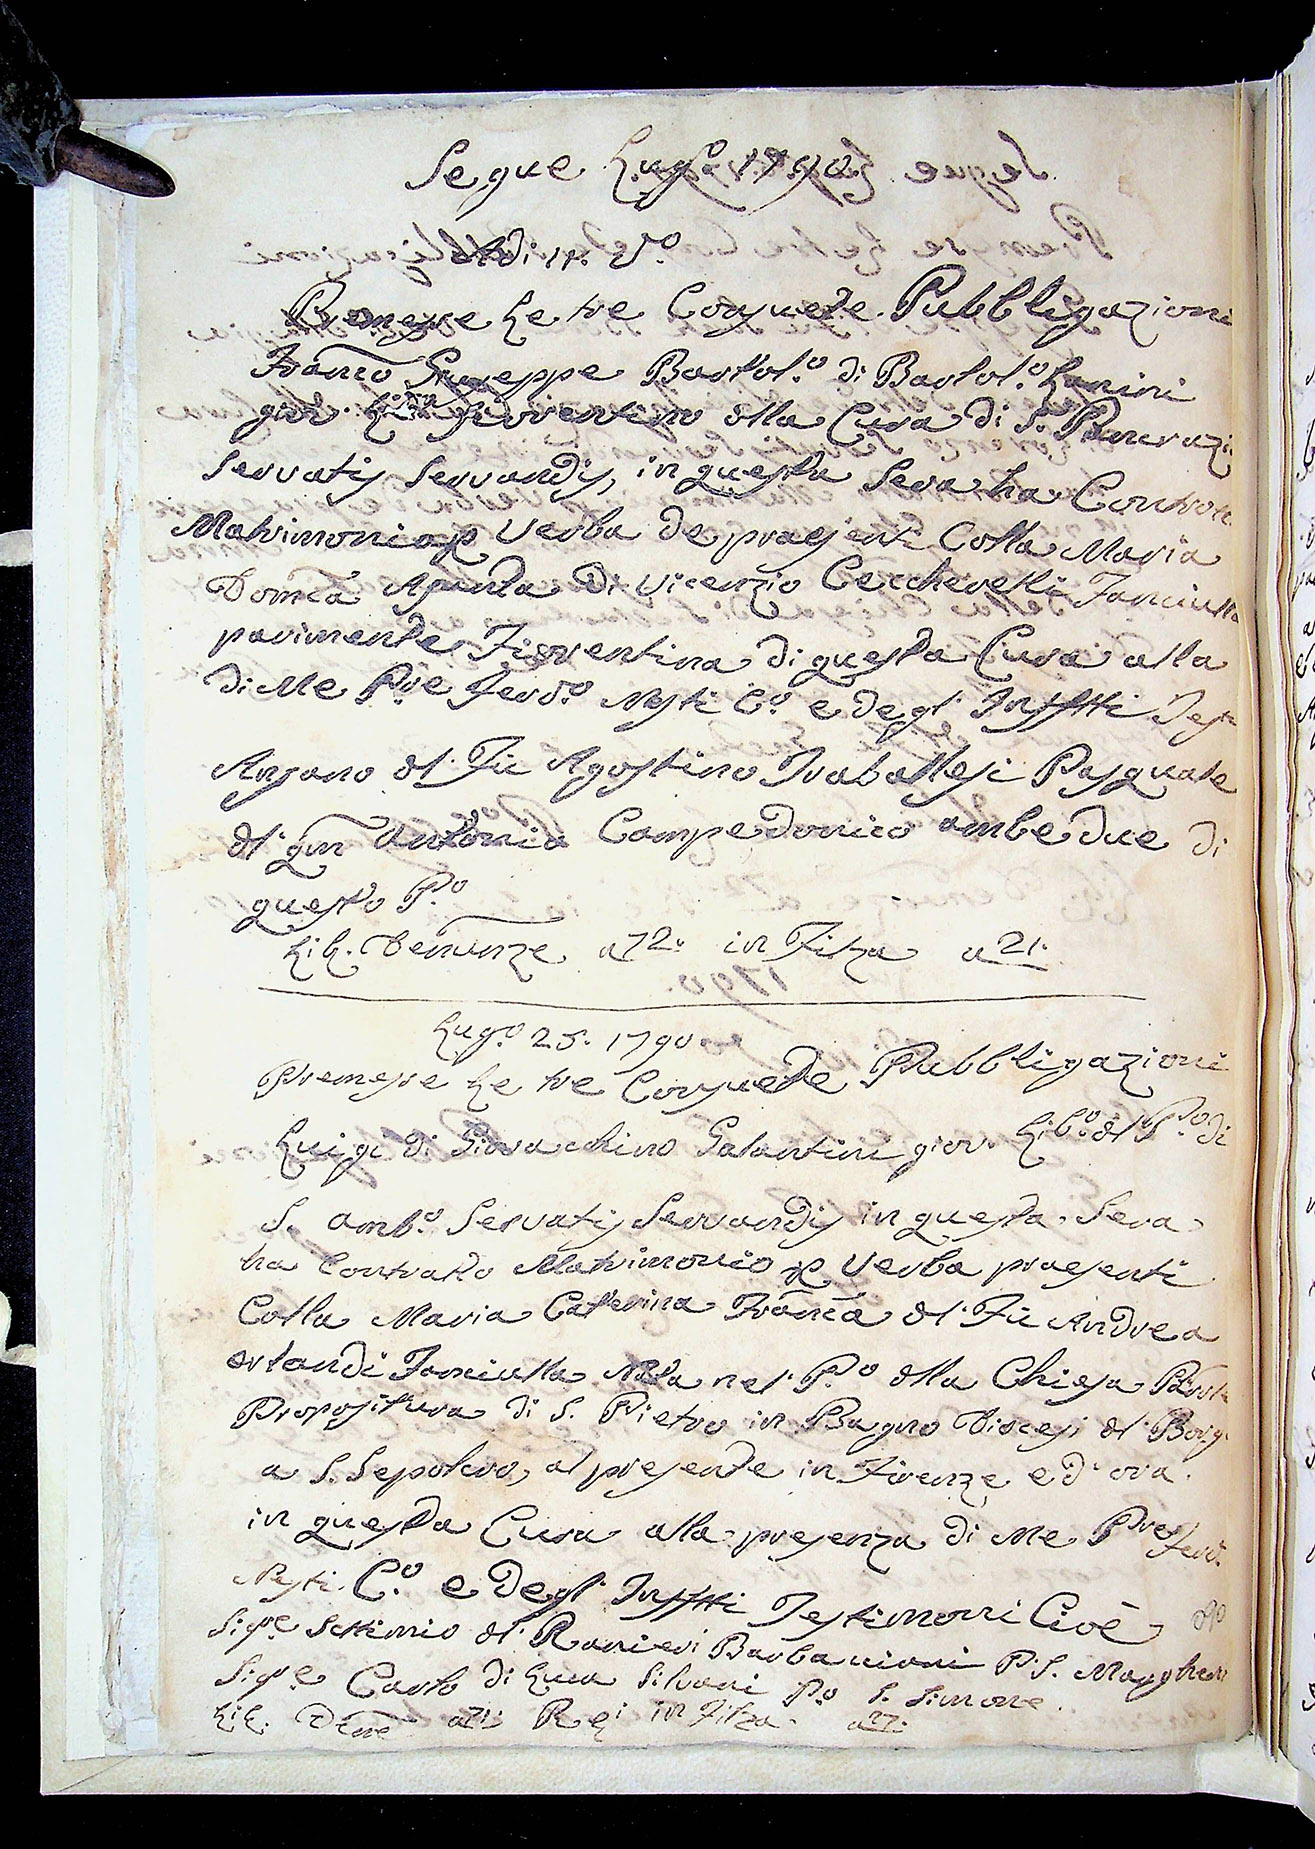 Segue Lug.o 1790
Adi 11. d.o
Premesse Le tre Consuete Pubbligazioni
Franco Giuseppe Bartol.o di Bartol.o Lanini
giov. Lib.o Fiorentino della Cura di S. Pancrazi
Servatis Servandis, in questa Sera ha Contratt
Matrimonio p Verba de praesenti Colla Maria
Domca Agnda Di Vicenzio Ceccherelli Fanciulla
parimente Fiorentina di questa Cura alla
di Me Pre Ferd.o Nesti C.o e degl' Inftti Test
Ansano dl Fu Agostino Traballesi Pasquale
dl qm Antonio Campedonico ambedue di
questo P.o
Lib. Denunze a 72. in Filza a 21.
Lug.o 25. 1790
Premesse Le tre Consuete Pubbligazioni
Luigi di Giovacchino Galantini giov. Lib.o dl P.o di
S. Amb.o Servatis Servandis in questa Sera
ha Contratto Matrimonio p Verba praesenti
Colla Maria Catterina Franca dl Fu Andrea
Orlandi Fanciulla Nata nel P.o dlla Chiesa
Propositura di S. Pietro in Bagno Diocesi dl Borg
a S. Sepolcro, al presente in Firenze ed ora
in questa Cura alla presenza di Me Pre Ferd.
Nesti C.o e degl' Inftti Testimoni Cioè
Sig.re Settimio dl Ranieri Barbacciani P. S. Margherit
Sig.re Carlo di Luca Silvani P.o S. Simone
Lib. Dene a in Filza a 27.